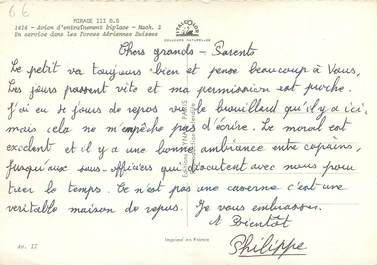 66
MIRAGE III B.S
1414 - Avion d'entraînement biplace - Mach. 2
En service dans les Forces Aériennes Suisses
ITALCOLOR
COULEURS NATURELLES
Chers grands-Parents
Le petit va toujours bien et pense beaucoup à Vous,
Les jours passent vite et ma permission est proche.
J'ai eu 2 jours de repos vu le brouillard qu'il y a ici,
mais cela ne m'empêche pas d'écrire. Le moral est
excelent et il y a une bonne ambiance entre copains,
jusqu'aux sous-officiers qui discutent avec nous pour
tuer le temps. Ce n'est pas une caserne c'est une
veritable maison de repos. Je vous embrasse.
A Bientôt
Philippe
PARIS
Av. II
Imprimé en France